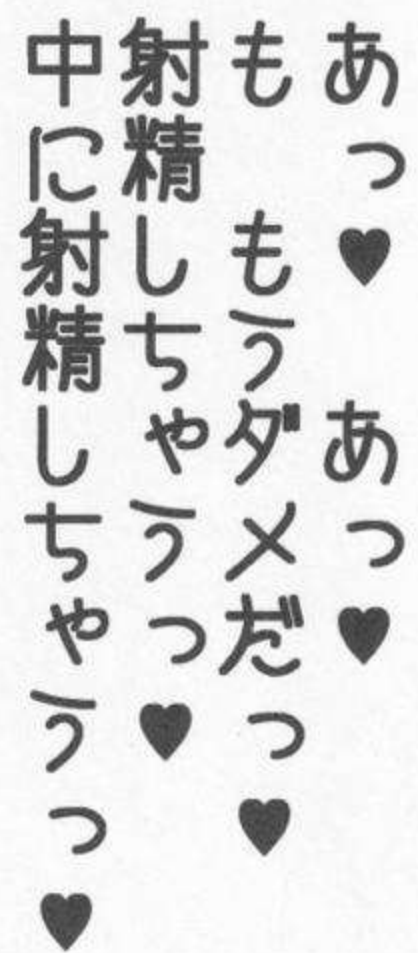 あっ♥　あっ♥
も　もうダメだっ♥
射精しちゃうっ♥
中に射精しちゃうっ♥